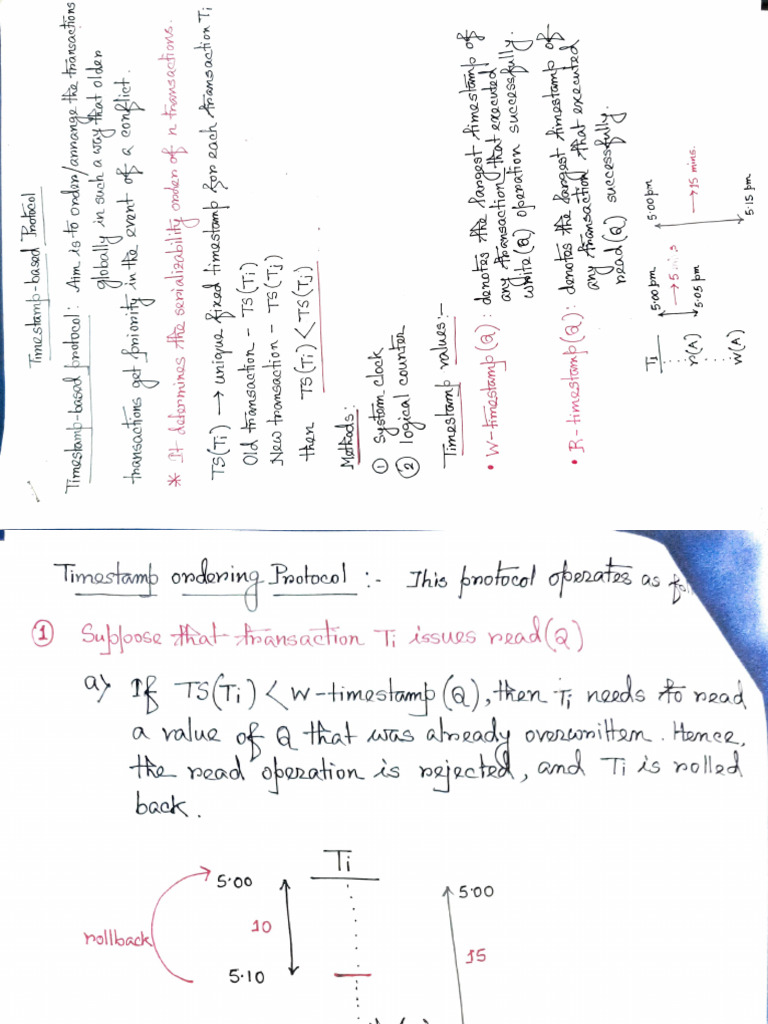 Timestamp-based Protocol
Timestamp-based protocol: Aim is to order/arrange the transactions
globally in such a way that older
transactions get priority in the event of a conflict.
* It determines the serializability order of n transactions.
TS(Ti) → unique fixed timestamp for each transaction Ti
Old transaction - TS(Ti)
New transaction - TS(Tj)
then TS(Ti) < TS(Tj)
Methods:
① System clock
② logical counter
Timestamp values:-
• W-timestamp(Q): denotes the largest timestamp of
any transaction that executed
write(Q) operation successfully.
• R-timestamp(Q): denotes the largest timestamp of
any transaction that executed
read(Q) successfully.
Ti 5:00pm 5:00pm
→5 mins →15 mins.
r(A) 5:05 pm
w(A) 5:15 pm
Timestamp ordering Protocol :- This protocol operates as
① Suppose that transaction Ti issues read(Q)
a) If TS(Ti) < W-timestamp(Q), then Ti needs to read
a value of Q that was already overwritten. Hence,
the read operation is rejected, and Ti is rolled
back.
Ti
5.00 5.00
10
rollback 15
5.10